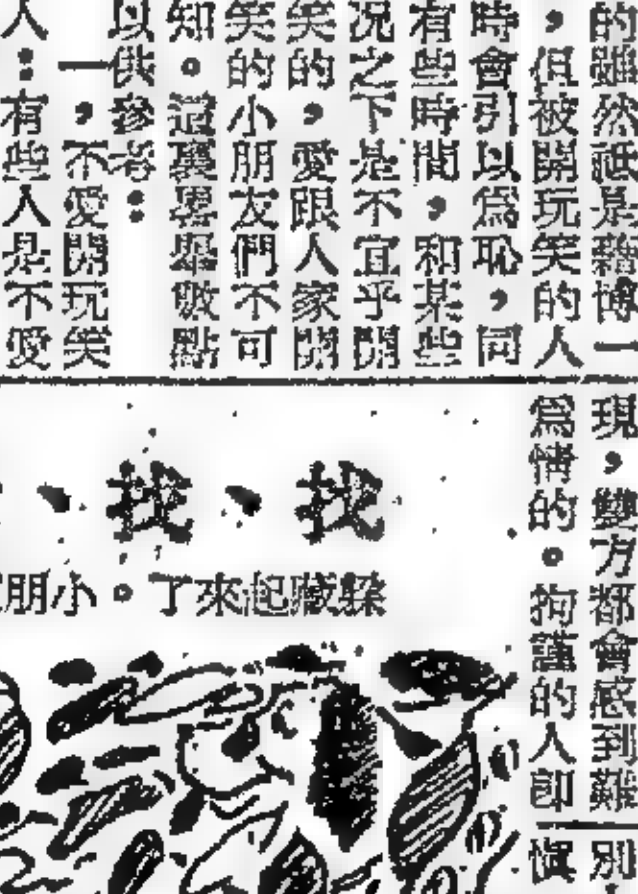 的雖然祇是藉博一
，但被開玩笑的人
時會引以爲恥，同
有些時間，和某些
况之下是不宜乎開
笑的，愛跟人家開
笑的小朋友們不可
知。這裏畧舉數點
以供參考：
一，不愛開玩笑
人：有些人是不愛
現，雙方都會感到難
爲情的。拘謹的人卽
別
愼
找、找、
躲藏起來了。小朋